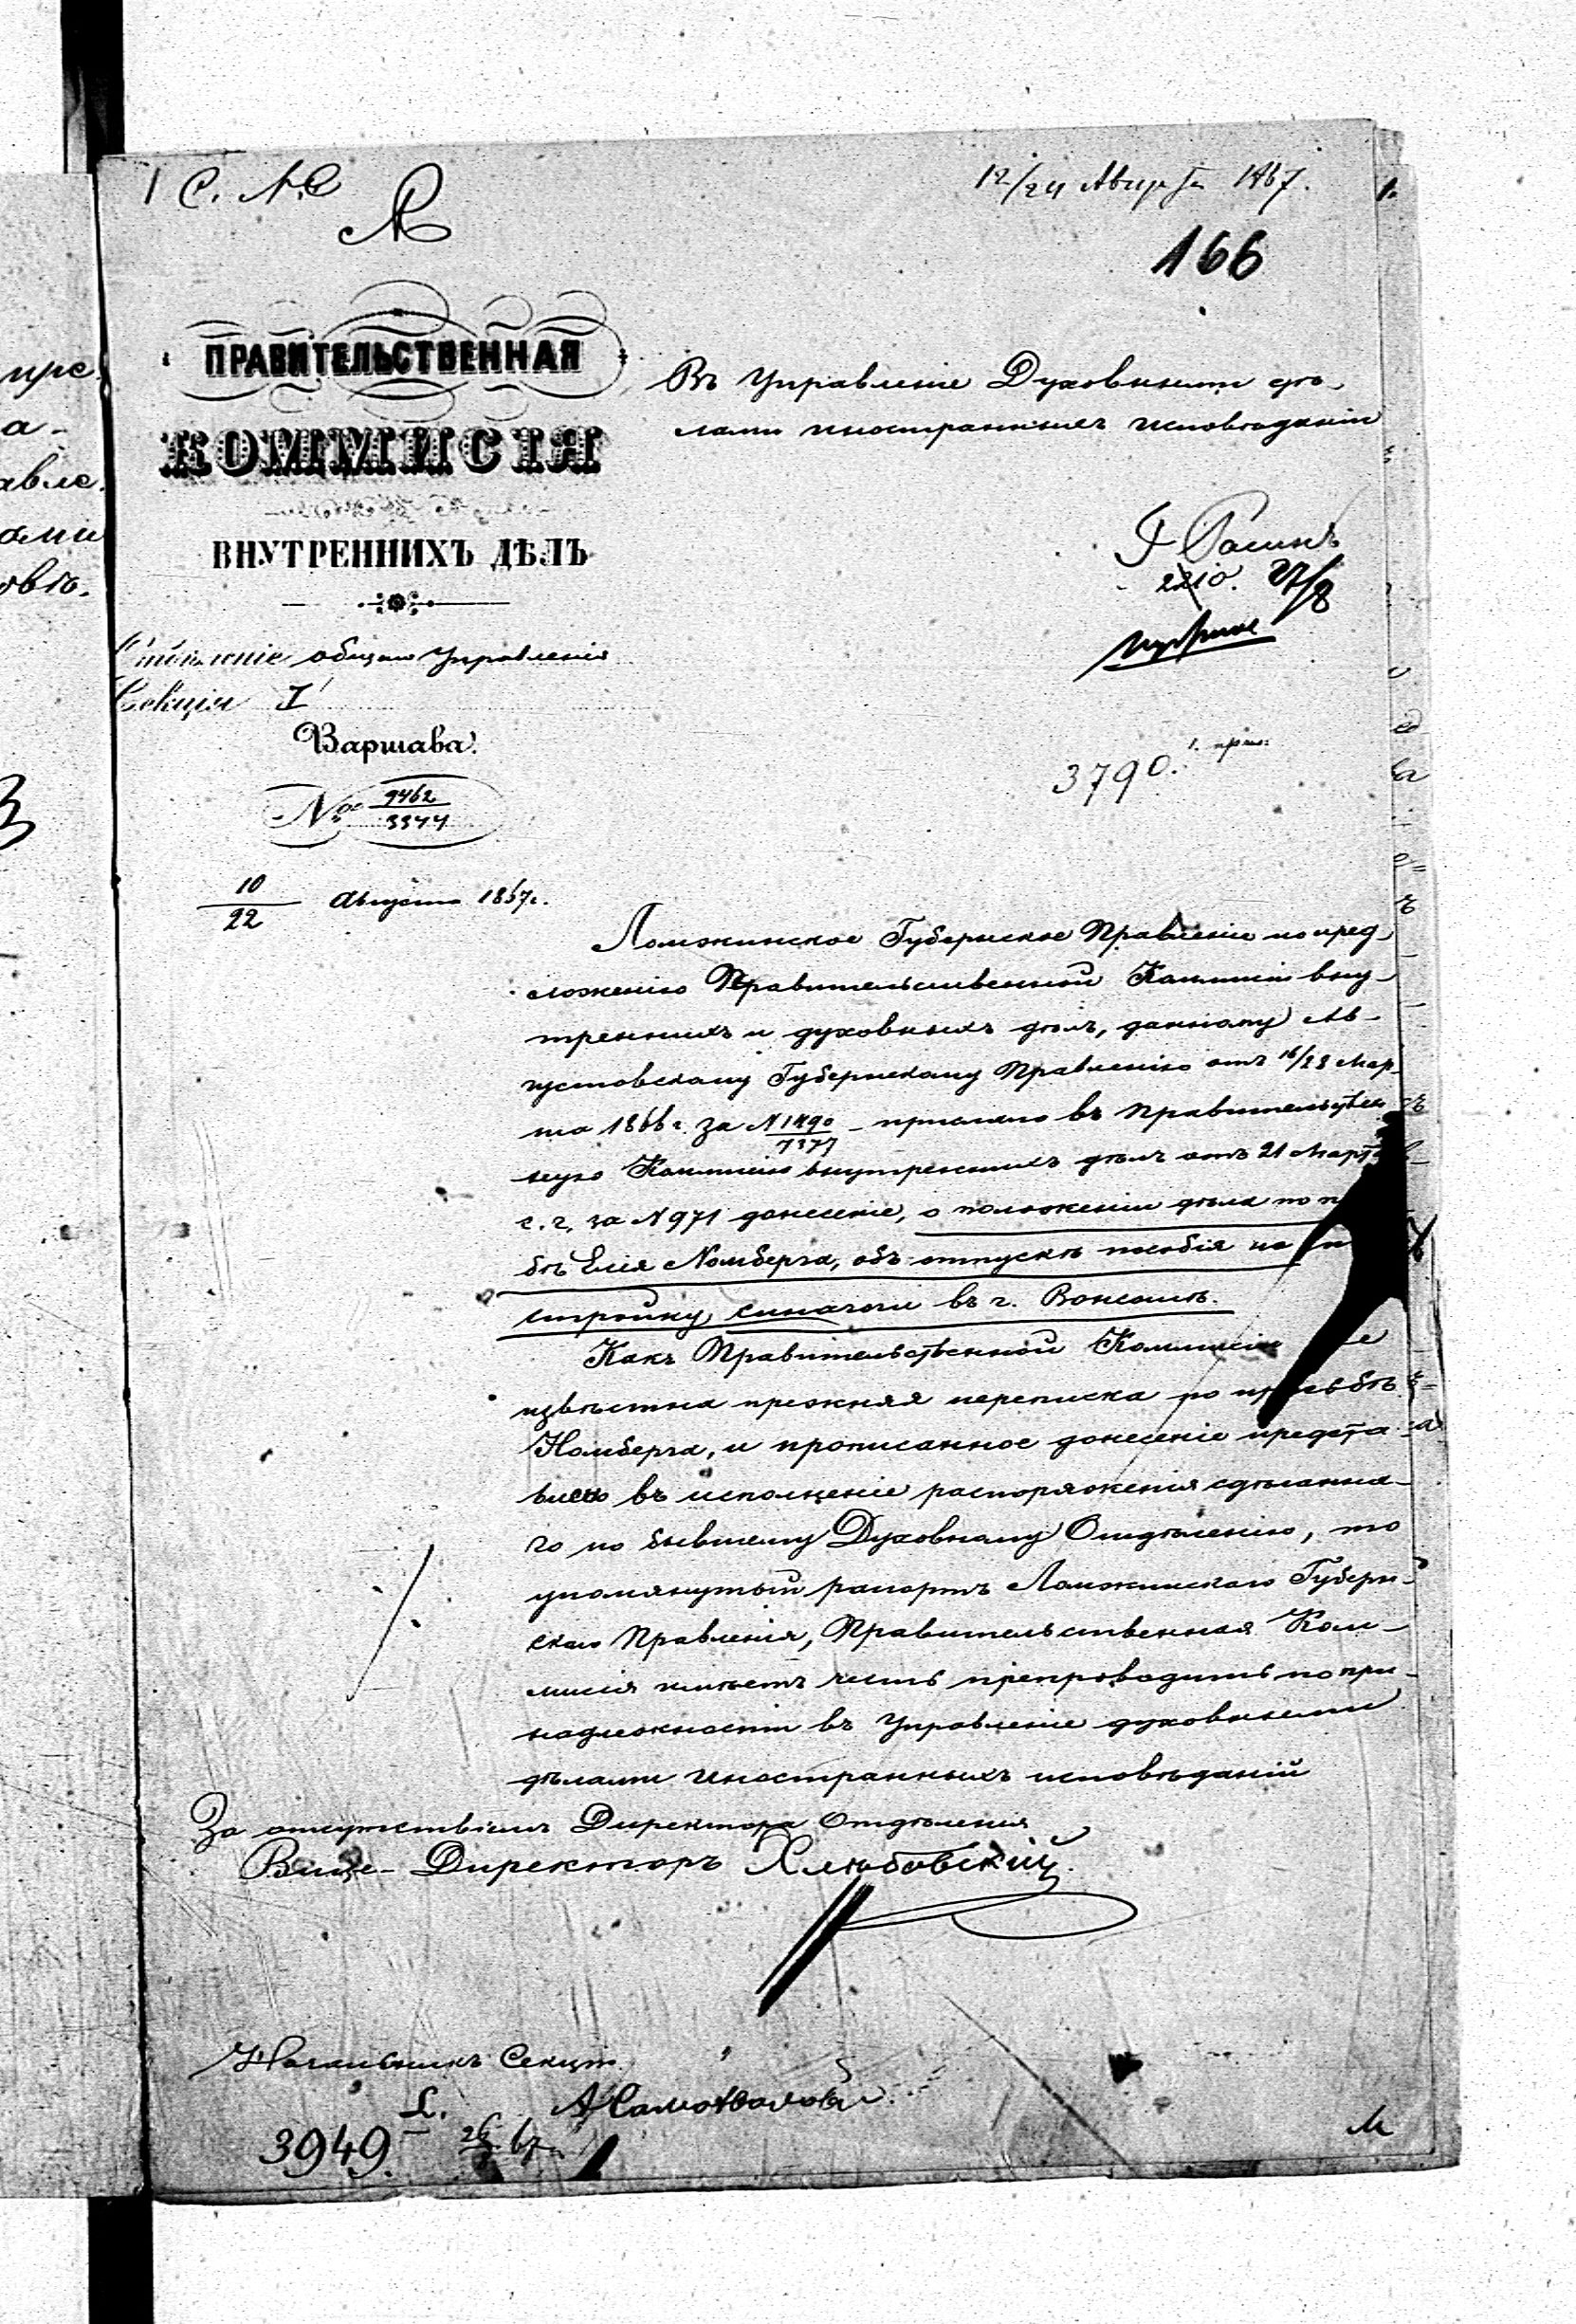 12/24 Августа 1867.
166
ПРАВИТЕЛЬСТВЕННАЯ
КОММИСІЯ
ВНУТРЕННИХЪ ДѢЛЪ
Отдѣленіе общаго Управленія
Секція I
Варшава.
№ 9462
3344
10
22 Августа 1867 г.
Въ Управленіе Духовными дѣ-
лами иностранныхъ исповѣданій
2210. 27/8
3790. 1. прил.
Ломжинское Губернское Правленіе по пред-
ложенію Правительственной Коммисіи вну-
треннихъ и духовныхъ дѣлъ, данному Ав-
густовскому Губернскому Правленію отъ 16/28 Мар-
та 1866 г. за № 1490
7377 - прислало въ Правительствен
ную Коммисію внутреннихъ дѣлъ отъ 21 Марта
с. г. за № 971 донесеніе, о положеніи дѣла по п
бѣ Еліи Номберга, объ отпускѣ пособія на п
стройку синагоги въ г.
Какъ Правительственной Коммисіи не
извѣстна прежняя переписка по просьбѣ
Номберга, и прописанное донесеніе предста
влено въ исполненіе распоряженія сдѣланна-
го по бывшему Духовному Отдѣленію, то
упомянутый рапортъ Ломжинскаго Губерн-
скаго Правленія, Правительственная Ком-
мисія имѣетъ честь препроводить по при-
надлежности въ Управленіе духовными
дѣлами Иностранныхъ исповѣданій
За отсутствіемъ Директора Отдѣленія
Вице-Директоръ Хлюбовскій.
Начальникъ Секціи
3949.